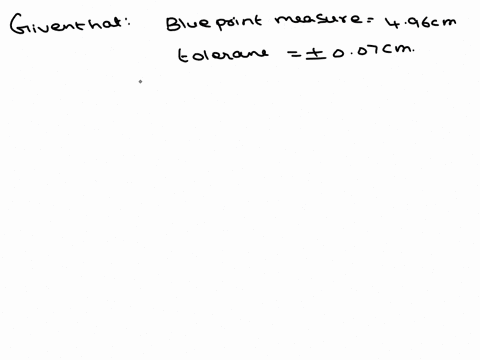 Given that: Blue point measure = 4.96cm
tolerane = ± 0.07cm.